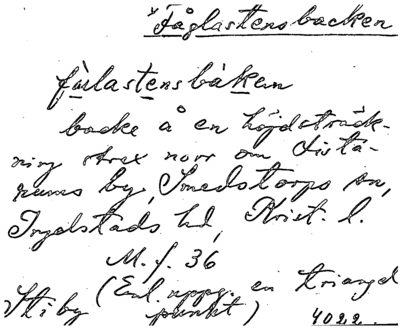 Fåglastensbacken
fúlastensbákan
backe å en höjdsträck-
ning strax norr om Listá-
rums by, Smedstorps sn,
Ingelstads hd, Krist. l.
M. f. 36
(Enl. uppg. en triangel
Stiby punkt)
4022